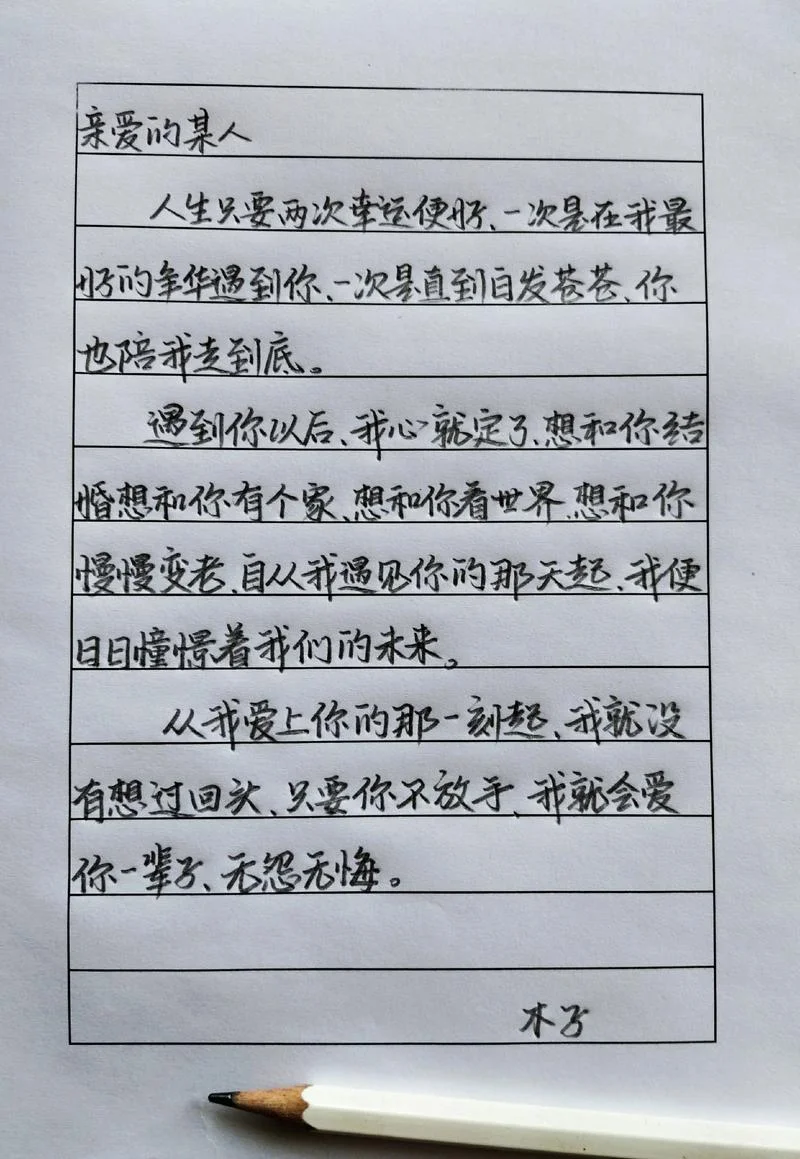 亲爱的某人
人生只要两次幸运便好、一次是在我最
好的年华遇到你、一次是直到白发苍苍、你
也陪我走到底。
遇到你以后、我心就定了、想和你结
婚想和你有个家、想和你看世界、想和你
慢慢变老、自从我遇见你的那天起、我便
日日憧憬着我们的未来。
从我爱上你的那一刻起、我就没
有想过回头、只要你不放手、我就会爱
你一辈子、无怨无悔。
木子